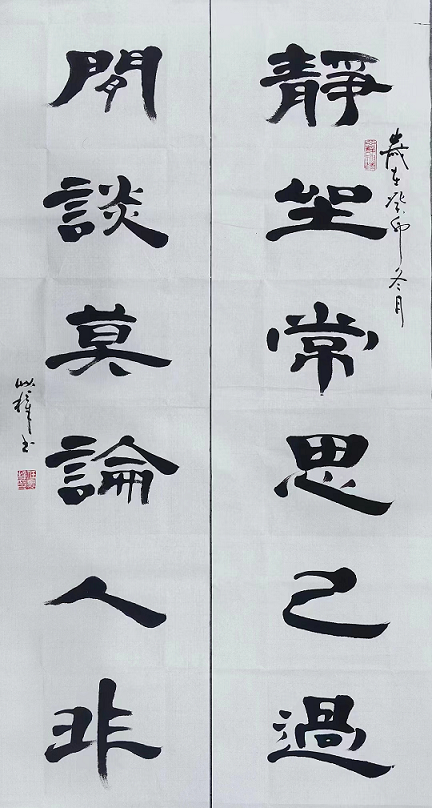 歲在癸卯冬月
靜坐常思己過
閒談莫論人非